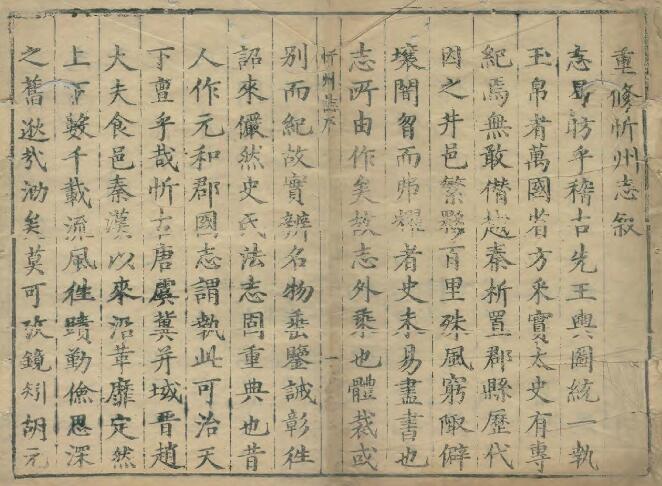 重修忻州志叙
志曷昉乎稽古先王輿圖統一執
玉帛者萬國省方采實太史有專
紀焉無敢僭越秦析置郡縣歷代
因之井邑繁夥百里殊風窮陬僻
壤闇曶而弗耀者史未易盡書也
志所由作矣故志外乘也體裁或
忻州志序
一
別而紀故實辨名物垂鑒誡彰徃
詔來儼然史氏法志固重典也昔
人作元和郡國志謂執此可治天
下亶乎哉忻古唐虞冀并域晋趙
大夫食邑秦漢以來沿革靡定然
上下數千載流風徃蹟勤儉思深
之舊哉泐矣莫可攷鏡矧胡元